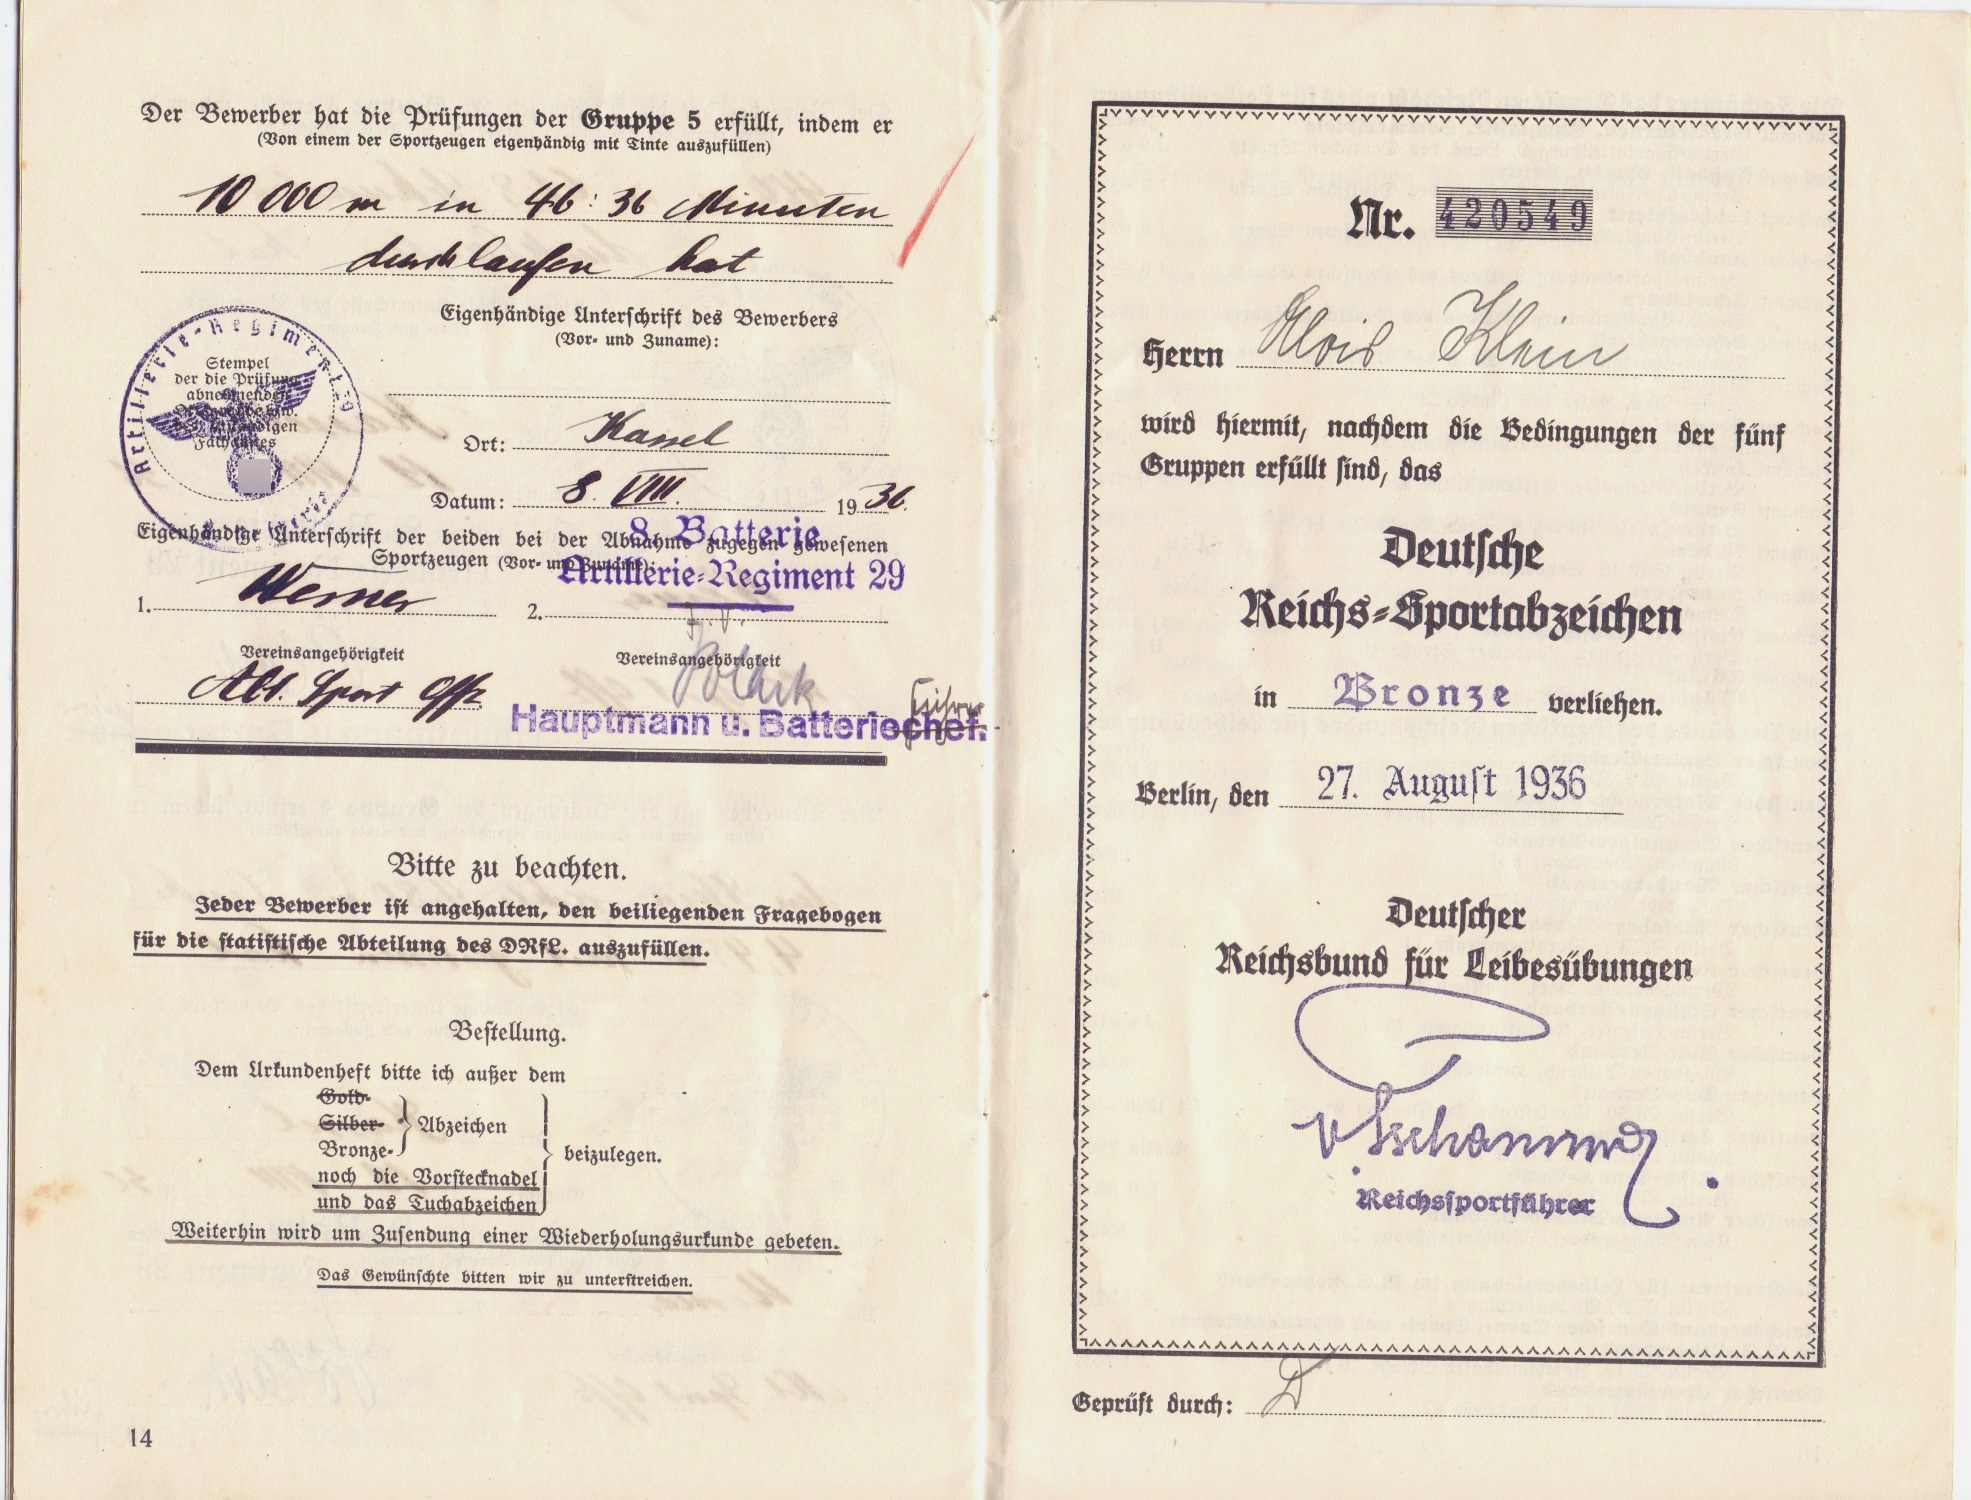 Der Bewerber hat die Prüfungen der Gruppe 5 erfüllt, indem er
(Von einem der Sportzeugen eigenhändig mit Tinte auszufüllen)
10 000 m in 46:36 Minuten
durchlaufen hat
Eigenhändige Unterschrift des Bewerbers
(Vor- und Zuname):
Artillerie-Regiment 29
Stempel
der die Prüfung
abnehmenden
Fachamtes
Ort: Kassel
Datum: 8. VIII. 1936.
Eigenhändige Unterschrift der beiden bei der Abnahme zugegen gewesenen
Sportzeugen (Vor- und Zuname):
8. Batterie
Artillerie-Regiment 29
1. Werner 2.
Vereinsangehörigkeit Vereinsangehörigkeit
Abt. Sport Offz
Hauptmann u. Batteriechef.
Bitte zu beachten.
Jeder Bewerber ist angehalten, den beiliegenden Fragebogen
für die statistische Abteilung des DRfL. auszufüllen.
Bestellung.
Dem Urkundenheft bitte ich außer dem
Gold-
Silber- Abzeichen
Bronze- beizulegen.
noch die Vorstecknadel
und das Tuchabzeichen
Weiterhin wird um Zusendung einer Wiederholungsurkunde gebeten.
Das Gewünschte bitten wir zu unterstreichen.
14
Nr. 420549
Herrn Alois Klein
wird hiermit, nachdem die Bedingungen der fünf
Gruppen erfüllt sind, das
Deutsche
Reichs-Sportabzeichen
in Bronze verliehen.
Berlin, den 27. August 1936
Deutscher
Reichsbund für Leibesübungen
v Tschammer
Reichssportführer
Geprüft durch: D